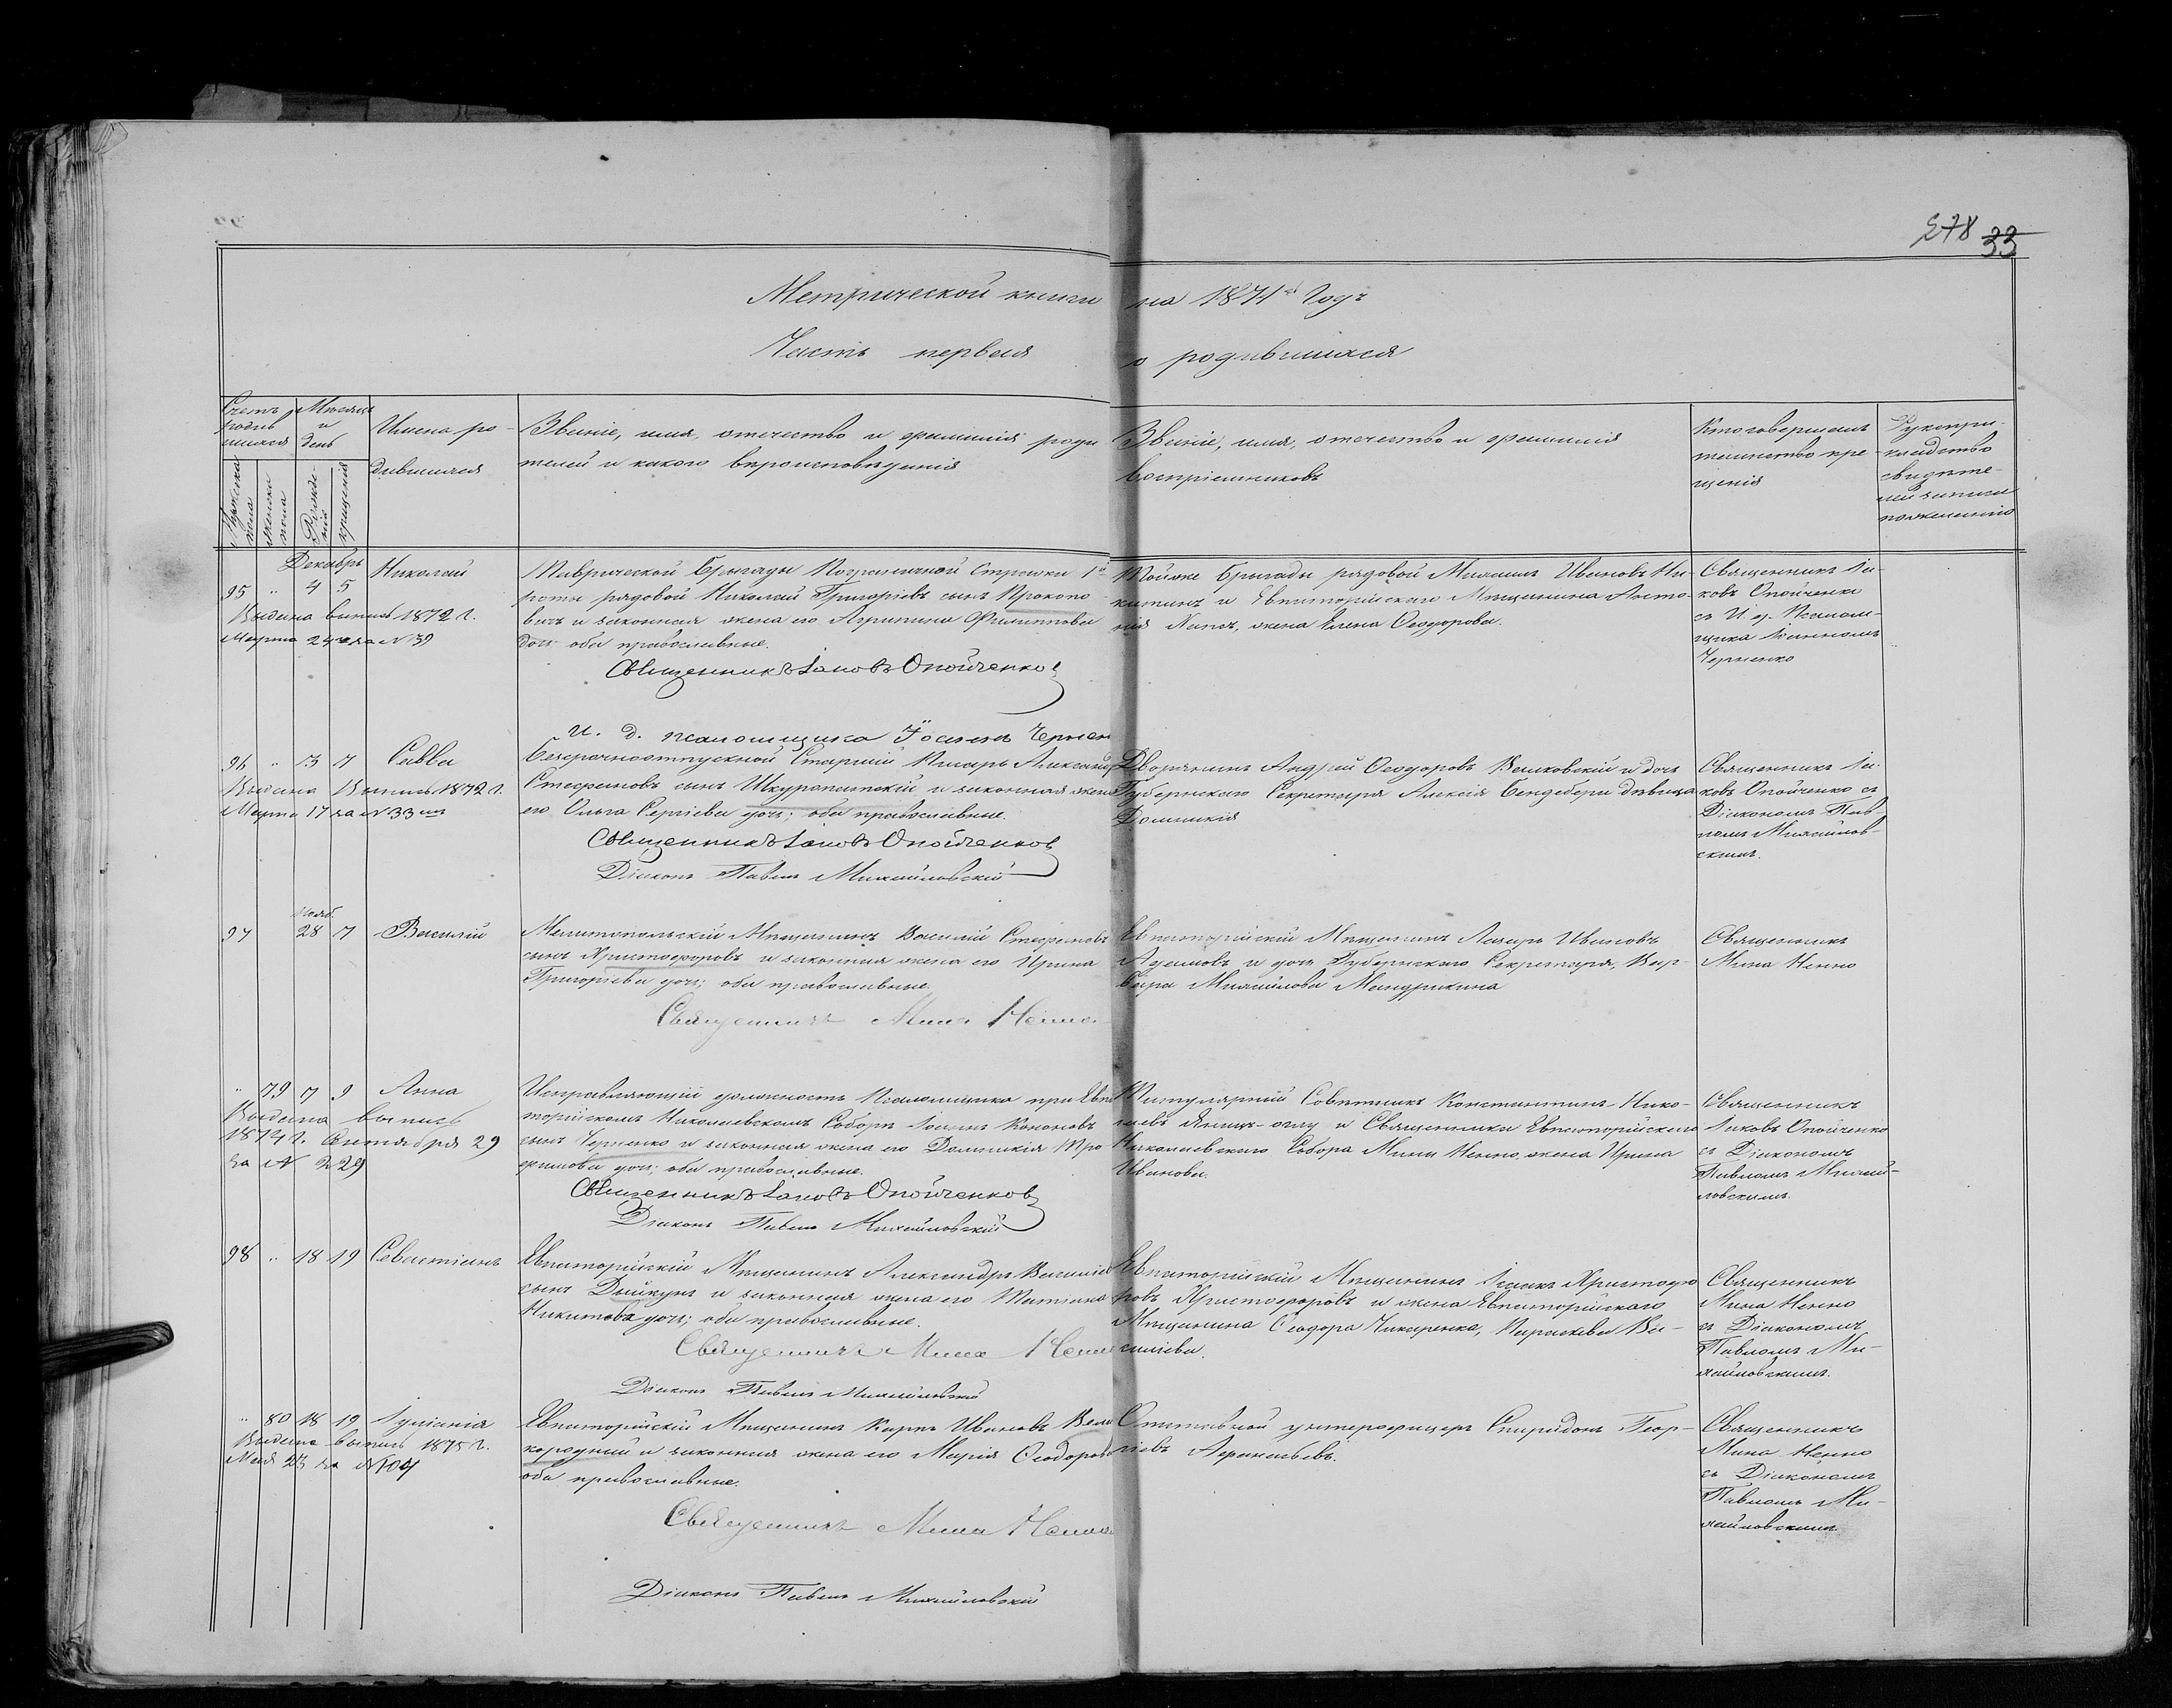 278 33
Метрической книги на 1871й Годъ
Часть первая о родившихся
Счетъ родив шихся
Мужеска пола
женска пола
Мѣсяцъ и день
Рожде- нія
крещенія
Имена ро-
дившихся
Званіе, имя, отечество и фамилія роди
телей и какого вѣроисповѣданія
Званіе, имя, отечество и фамилія
воспріемниковъ
Кто совершалъ
таинство кре-
щенія
Рукопри-
кладство
свидѣте-
лей записи
по желанію
Декабрь
95 " 4 5 Николай
Выдана выпись 1872 г.
Марта 24 за N 39
Таврической Бригады Пограничной Стражи 1й
роты рядовой Николай Григорьевъ сынъ Прокопо
вичъ и законная жена его Агрипина Филиппова
дочь оба православные.
Священникъ Іаковъ Опойченко
И. д. псаломщика Іосифъ Чернен
Тойже бригады рядовой Михаилъ Ивановъ Ни-
китинъ и Евпаторійскаго Мѣщанина Анто-
нія жена Елена Ѳеодорова.
Священникъ Іа-
ковъ Опойченко
съ И. д. Псалом-
щика Іосифомъ
Черненко
96 " 3 7 Савва
Выдана Выпись 1872 г.
Марта 17 за N 33
Безсрочноотпускной Старшій Писарь Александръ
Стефановъ сынъ Шкуропатскій и законная жена
его Ольга Сергіева дочь; оба православные.
Священникъ Іаковъ Опойченко
Діаконъ Павелъ Михайловскій
Дворянинъ Андрей Ѳеодоровъ и дочь
Губернскаго Секретаря Алексія Бендебери дѣвица
Домникія
Священникъ Іа-
ковъ Опойченко съ
Діакономъ Пав-
ломъ Михайлов-
скимъ.
Нояб.
97 28 7 Василій
Мелитопольскій Мѣщанинъ Василій Стефановъ
сынъ Христофоровъ и законная жена его Ирина
Григоріева дочь; оба православные.
Священникъ Мина Ненно
Евпаторійскій Мѣщанинъ Лазарь Ивановъ
и дочь Губернскаго Секретаря, Вар-
вара Михайлова Мандрикина
Священникъ
Мина Ненно
" 79 7 9 Анна
Выдана выпись
1874 г. Сентября 29
за N 229
Исправляющій должность Псаломщика при Евпа
торійскомъ Николаевскомъ Соборѣ Іосифъ Кононовъ
сынъ Черненко и законная жена его Домникія Тро
фимова дочь; оба православные.
Священникъ Іаковъ Опойченко
Діаконъ Павелъ Михайловскій
Титулярный Совѣтникъ Константинъ Нико-
лаевъ и Священника Евпаторійскаго
Николаевскаго Собора Мины Ненно, жена Ирина
Иванова.
Священникъ
Іаковъ Опойченко
съ Діакономъ
Павломъ Михай-
ловскимъ.
98 " 18 19 Севастіанъ
Евпаторійскій Мѣщанинъ Александръ Василіев
сынъ Дыйкунъ и законная жена его Татіана
Никитова дочь; оба православные.
Священникъ Мина Ненно
Діаконъ Павелъ Михайловскій
Евпаторійскій Мѣщанинъ Исаакъ Христофо
ровъ Христофоровъ и жена Евпаторійскаго
Мѣщанина Ѳеодора Чикаренка, Параскева Ва-
силіева.
Священникъ
Мина Ненно
съ Діакономъ
Павломъ Ми-
хайловскимъ.
" 80 18 19 Іуліанія
Выдана выпись 1875 г.
Мая 23 за N 104
Евпаторійскій Мѣщанинъ Карпъ Ивановъ Вели
кородный и законная жена его Марія Ѳеодоров
оба православные.
Священникъ Мина Ненно
Діаконъ Павелъ Михайловскій
Отставной унтерофицеръ Спиридонъ Геор-
гіевъ
Священникъ
Мина Ненно
съ Діакономъ
Павломъ Ми-
хайловскимъ.